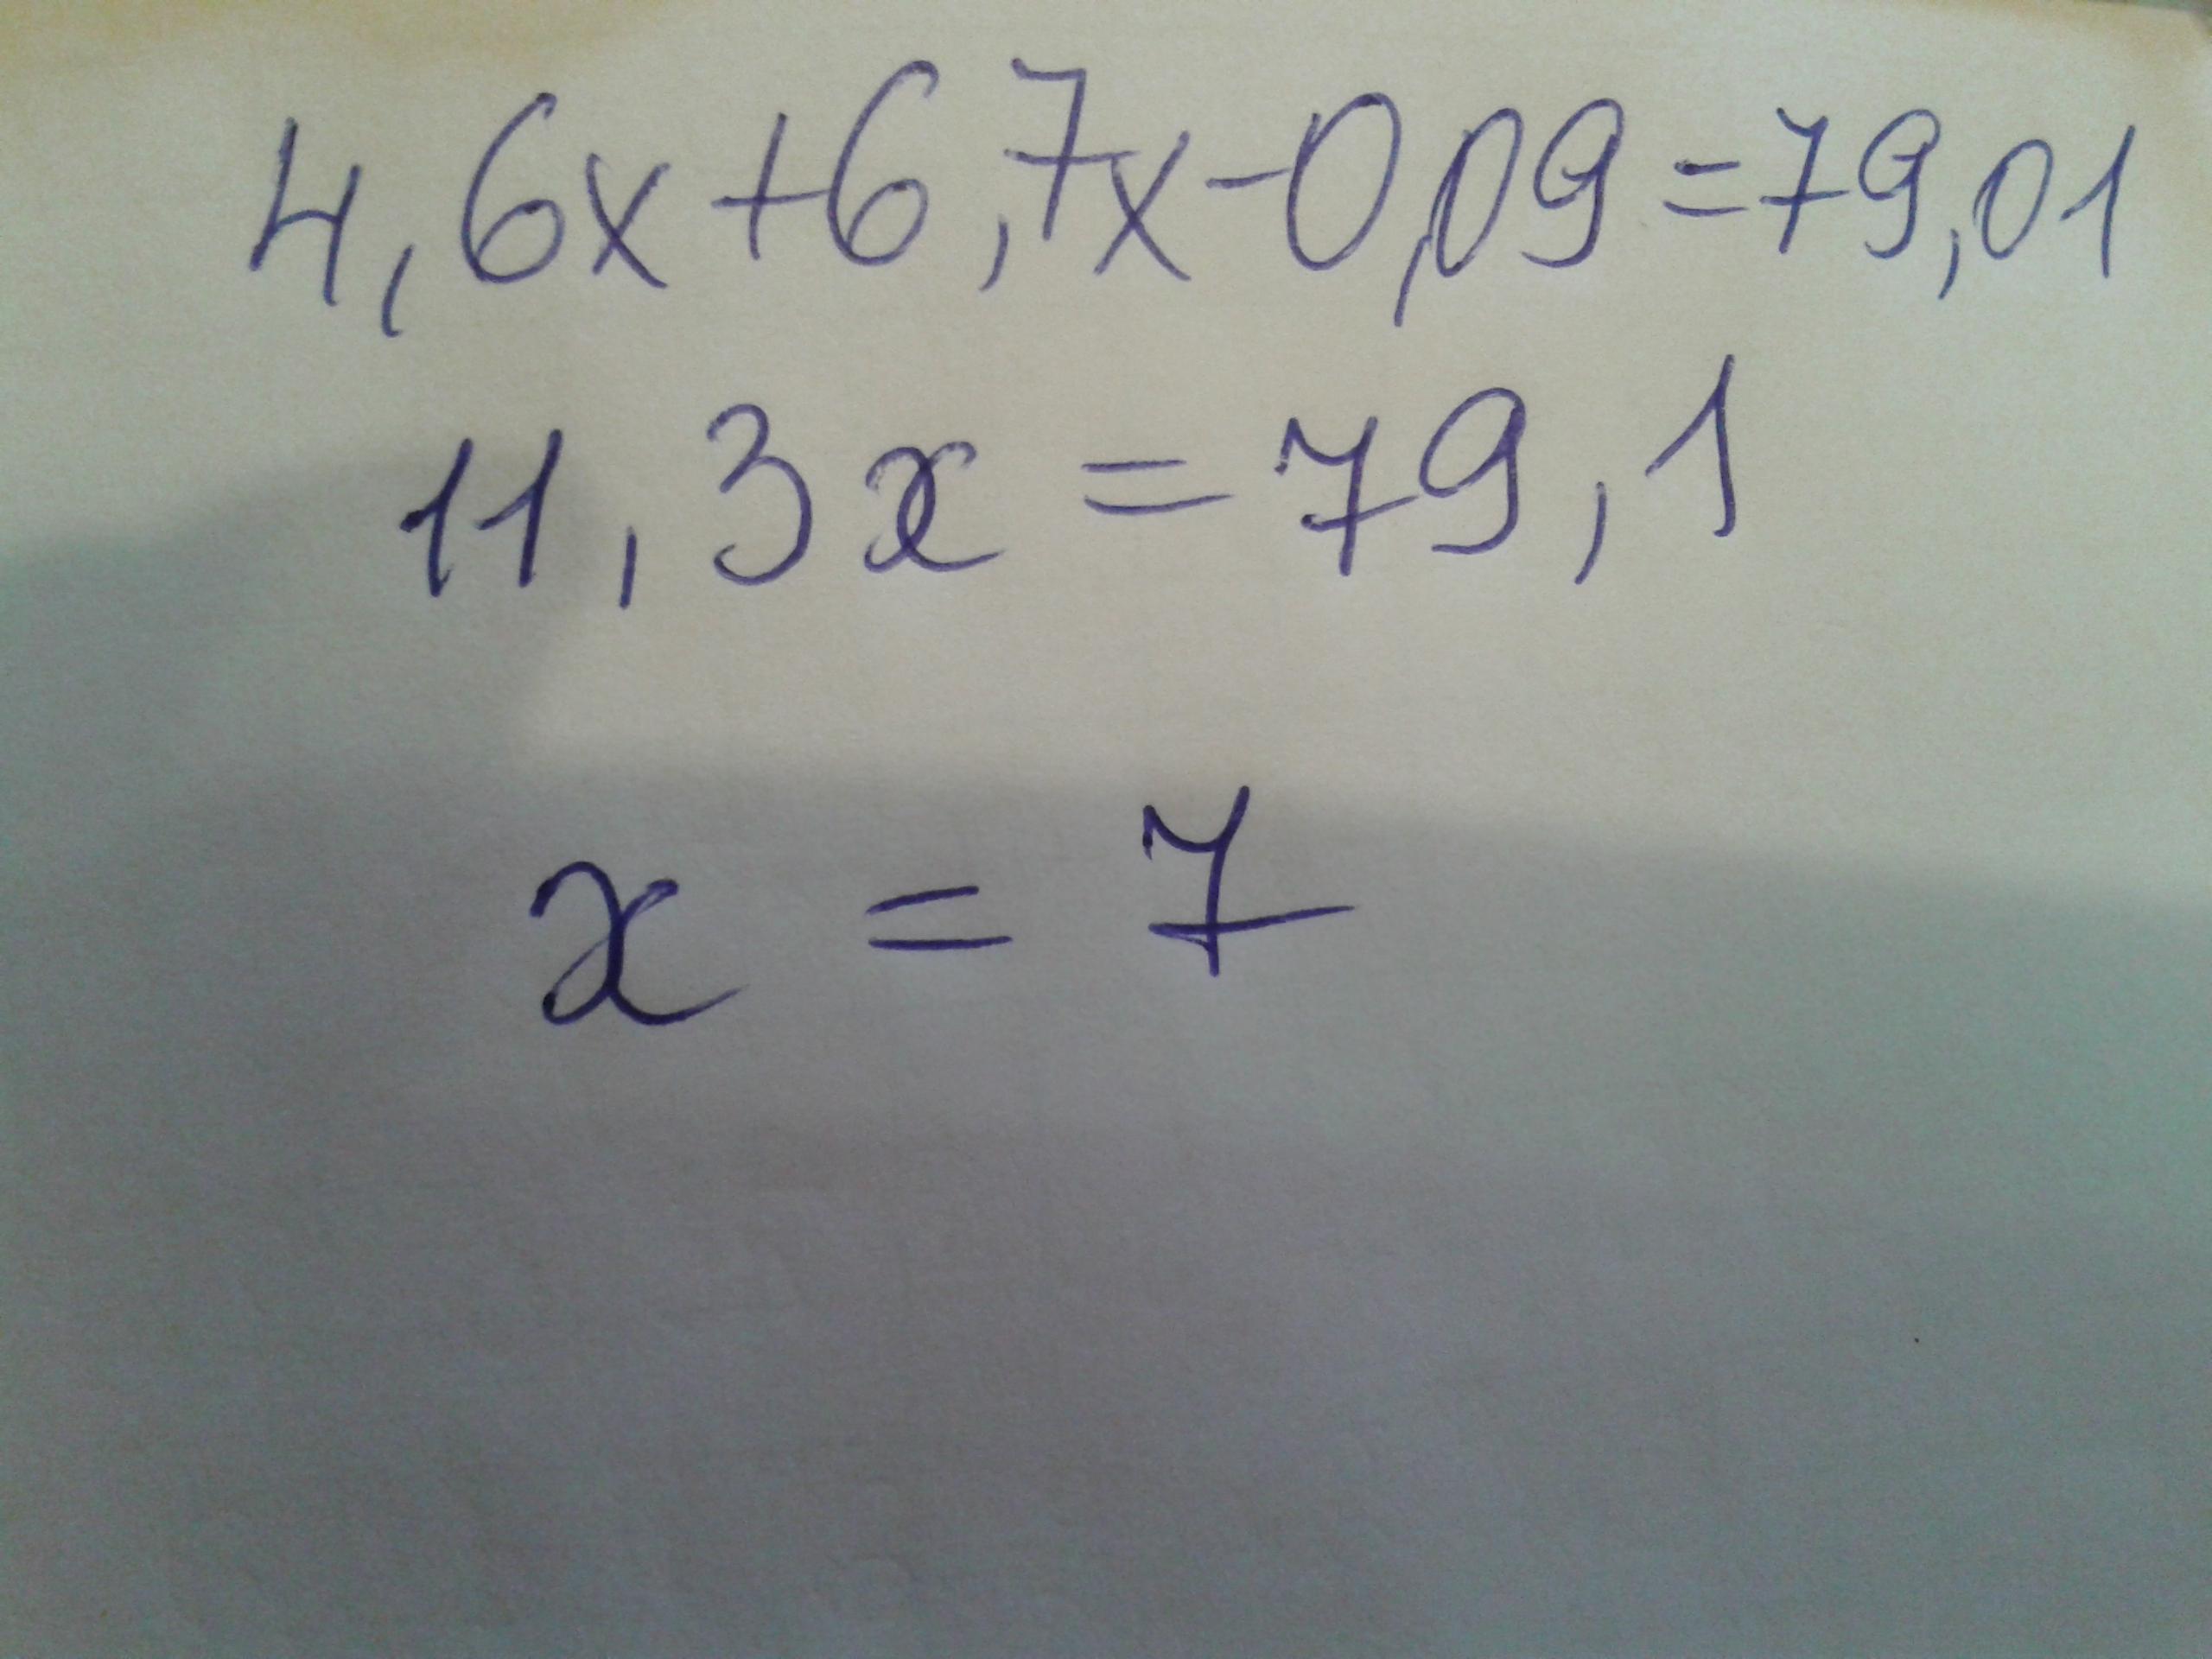 4,6x+6,7x-0,09=79,01
11,3x=79,1
x=7